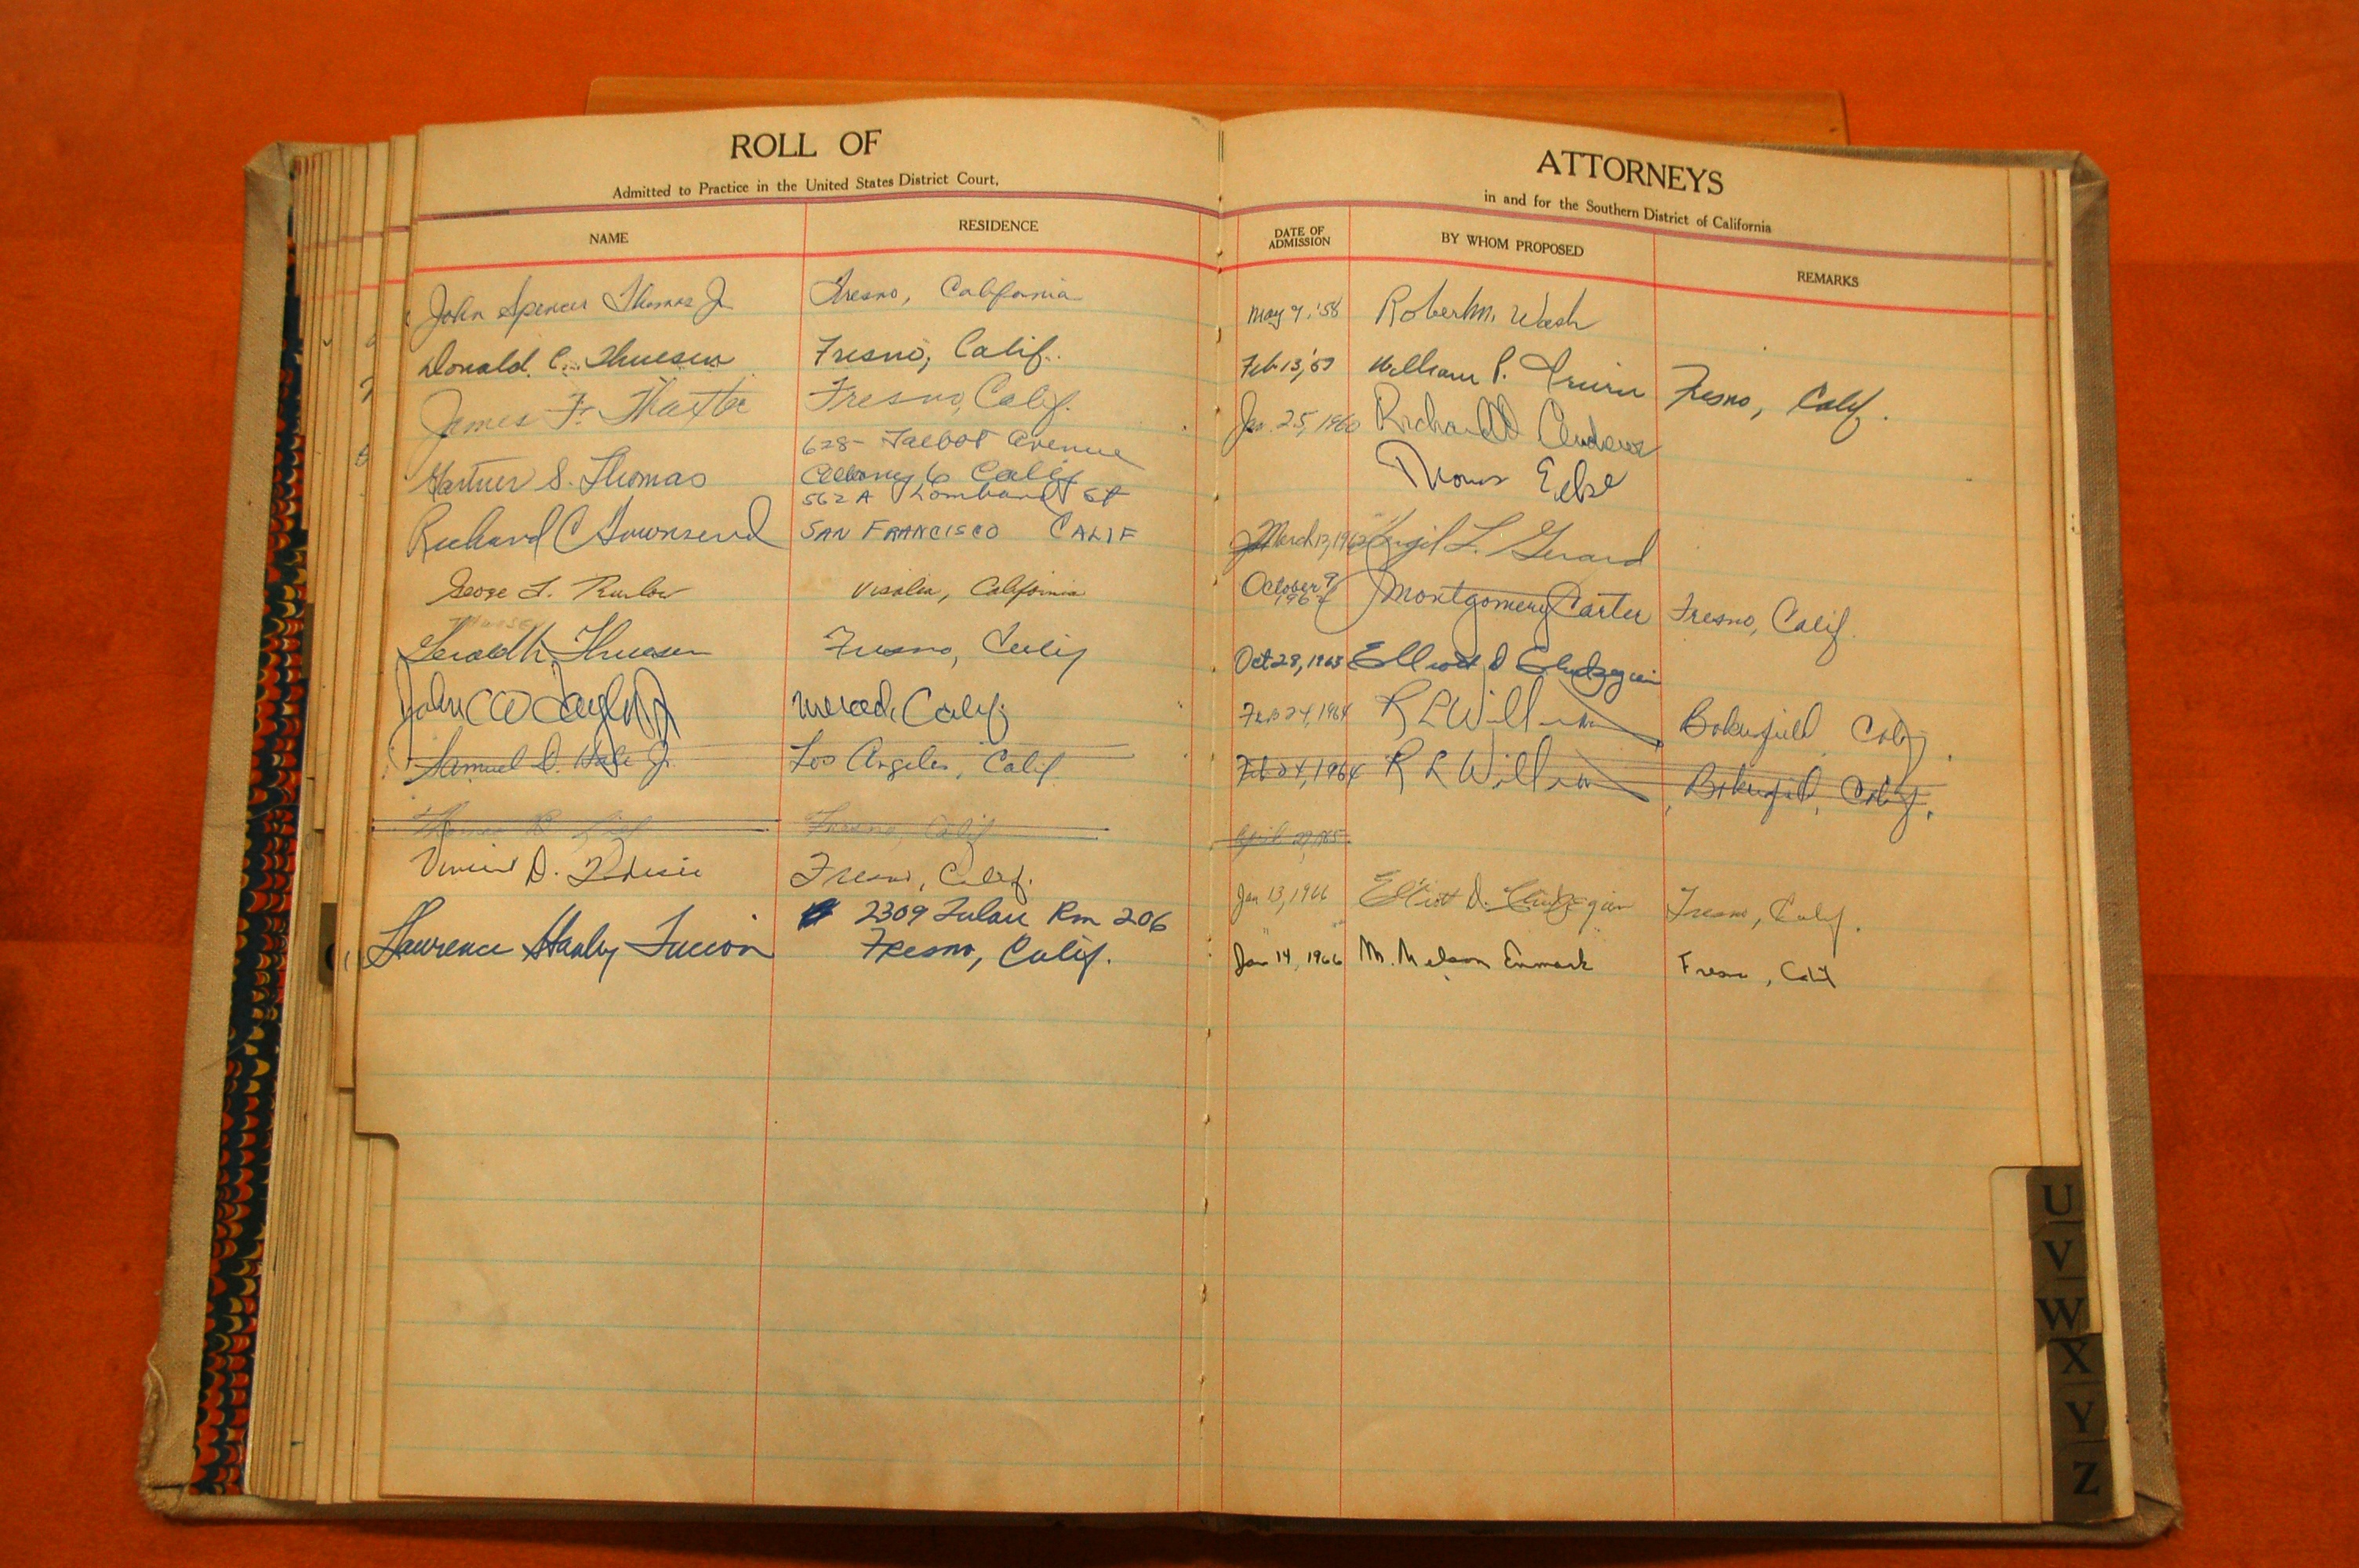 ROLL OF
Admitted to Practice in the United States District Court,
ATTORNEYS
in and for the Southern District of California
NAME RESIDENCE DATE OF ADMISSION BY WHOM PROPOSED REMARKS
John Spencer Thomas Jr Fresno, California May 9, '58 Robert M. Wash
Donald C. Thuesen Fresno, Calif. Feb 13, '59 William P. Fresno, Calif.
James F. Thaxter Fresno, Calif. Jan. 25, 1960 Richard
628 Talbot Avenue
S. Thomas Albany 6 Calif Thomas
562 A Lombard St
Richard C Townsend SAN FRANCISCO CALIF March 13, 1962 Virgil L. Gerard
George L. Visalia, California October 9 Montgomery Carter Fresno, Calif.
Gerald h. Thuesen Fresno, Calif Oct 28, 1963 Elliott D
John W Taylor Jr Merced, Calif. Feb 24, 1964 R L William Bakersfield Calif
Samuel D. Jr. Los Angeles, Calif Feb 24, 1964 R L William Bakersfield, Calif.
Thomas Fresno, Calif April 27, 1965
D. Fresno, Calif. Jan 13, 1966 Elliott D. Fresno, Calif.
2309 Tulare Rm 206
Lawrence Fresno, Calif. Jan 14, 1966 M. Nelson Enmark Fresno, Calif
U
V
W
X
Y
Z